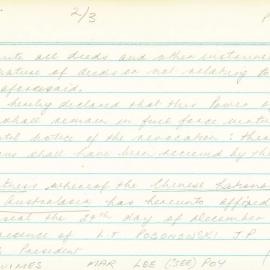 2/3
all deeds and other
nature of deeds or not relating to
aforesaid.
hereby declared that this Power
shall remain in full force until
notice of the revocation
shall have been received by
whereof the Chinese
Australasia has hereunto affixed
seal the 29th day of December
presence of L.T POGONOWSKI J.P
President
MAR LEE (SEE) POY